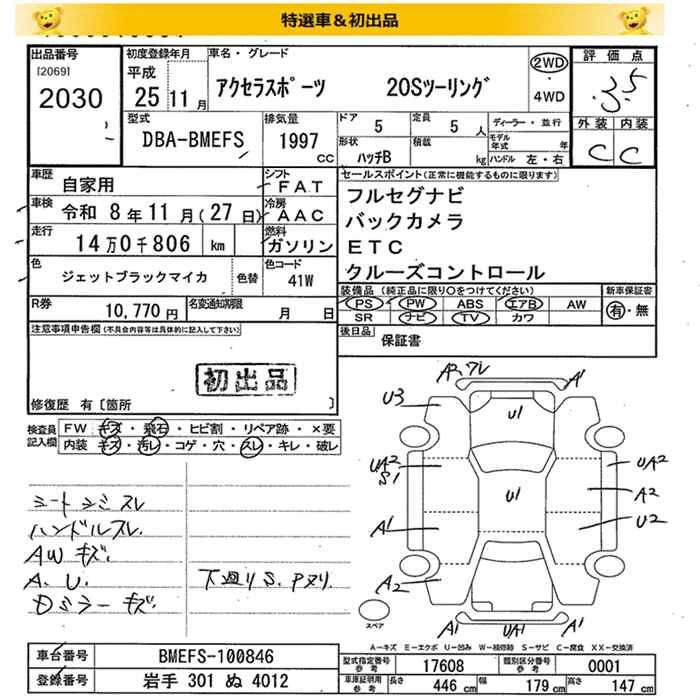 特選車＆初出品
出品番号
[2069]
2030
初度登録年月
平成
25 11 月
車名・グレード
アクセラスポーツ 20Sツーリング
2WD
4WD
評価点
3.5
外装 内装
C C
型式
DBA-BMEFS
排気量
1997 CC
ドア
5
定員
5 人
ディーラー・並行
モデル年式 年
形状
ハッチB
積載
kg
ハンドル 左・右
車歴
自家用
シフト
FAT
車検
令和 8年 11月(27日)
冷房
AAC
走行
14万0千806 km
燃料
ガソリン
色
ジェットブラックマイカ
色替
色コード
41W
R券
10,770 円
名変通知期限
月 日
セールスポイント(正常に機能するものに限ります)
フルセグナビ
バックカメラ
ETC
クルーズコントロール
装備品 (純正品に限り○をつけてください)
PS PW ABS エアB AW
SR ナビ TV カワ
新車保証書
有・無
後日品
保証書
注意事項申告欄 (不具合内容等は具体的に記入して下さい)
初出品
修復歴 有〔箇所 〕
検査員記入欄
FW キズ・飛石・ヒビ割・リペア跡・×要
内装 キズ・汚レ・コゲ・穴・スレ・キレ・破レ
シートシミスレ
ハンドルスレ.
AWキズ.
A. U. 下廻りS. Pヌリ.
Dミラーキズ.
A2 A1
U3 U1
UA2 S1 U1 UA2
A2
A1 U2
A2
A1 UA1 A1
スペア
A-キズ E-エクボ U-凹み W-補修跡 S-サビ C-腐食 XX-交換済
車台番号
BMEFS-100846
登録番号
岩手 301 ぬ 4012
型式指定番号 参考
17608
類別区分番号 参考
0001
車庫証明用 参考
長さ
446 cm
幅
179 cm
高さ
147 cm